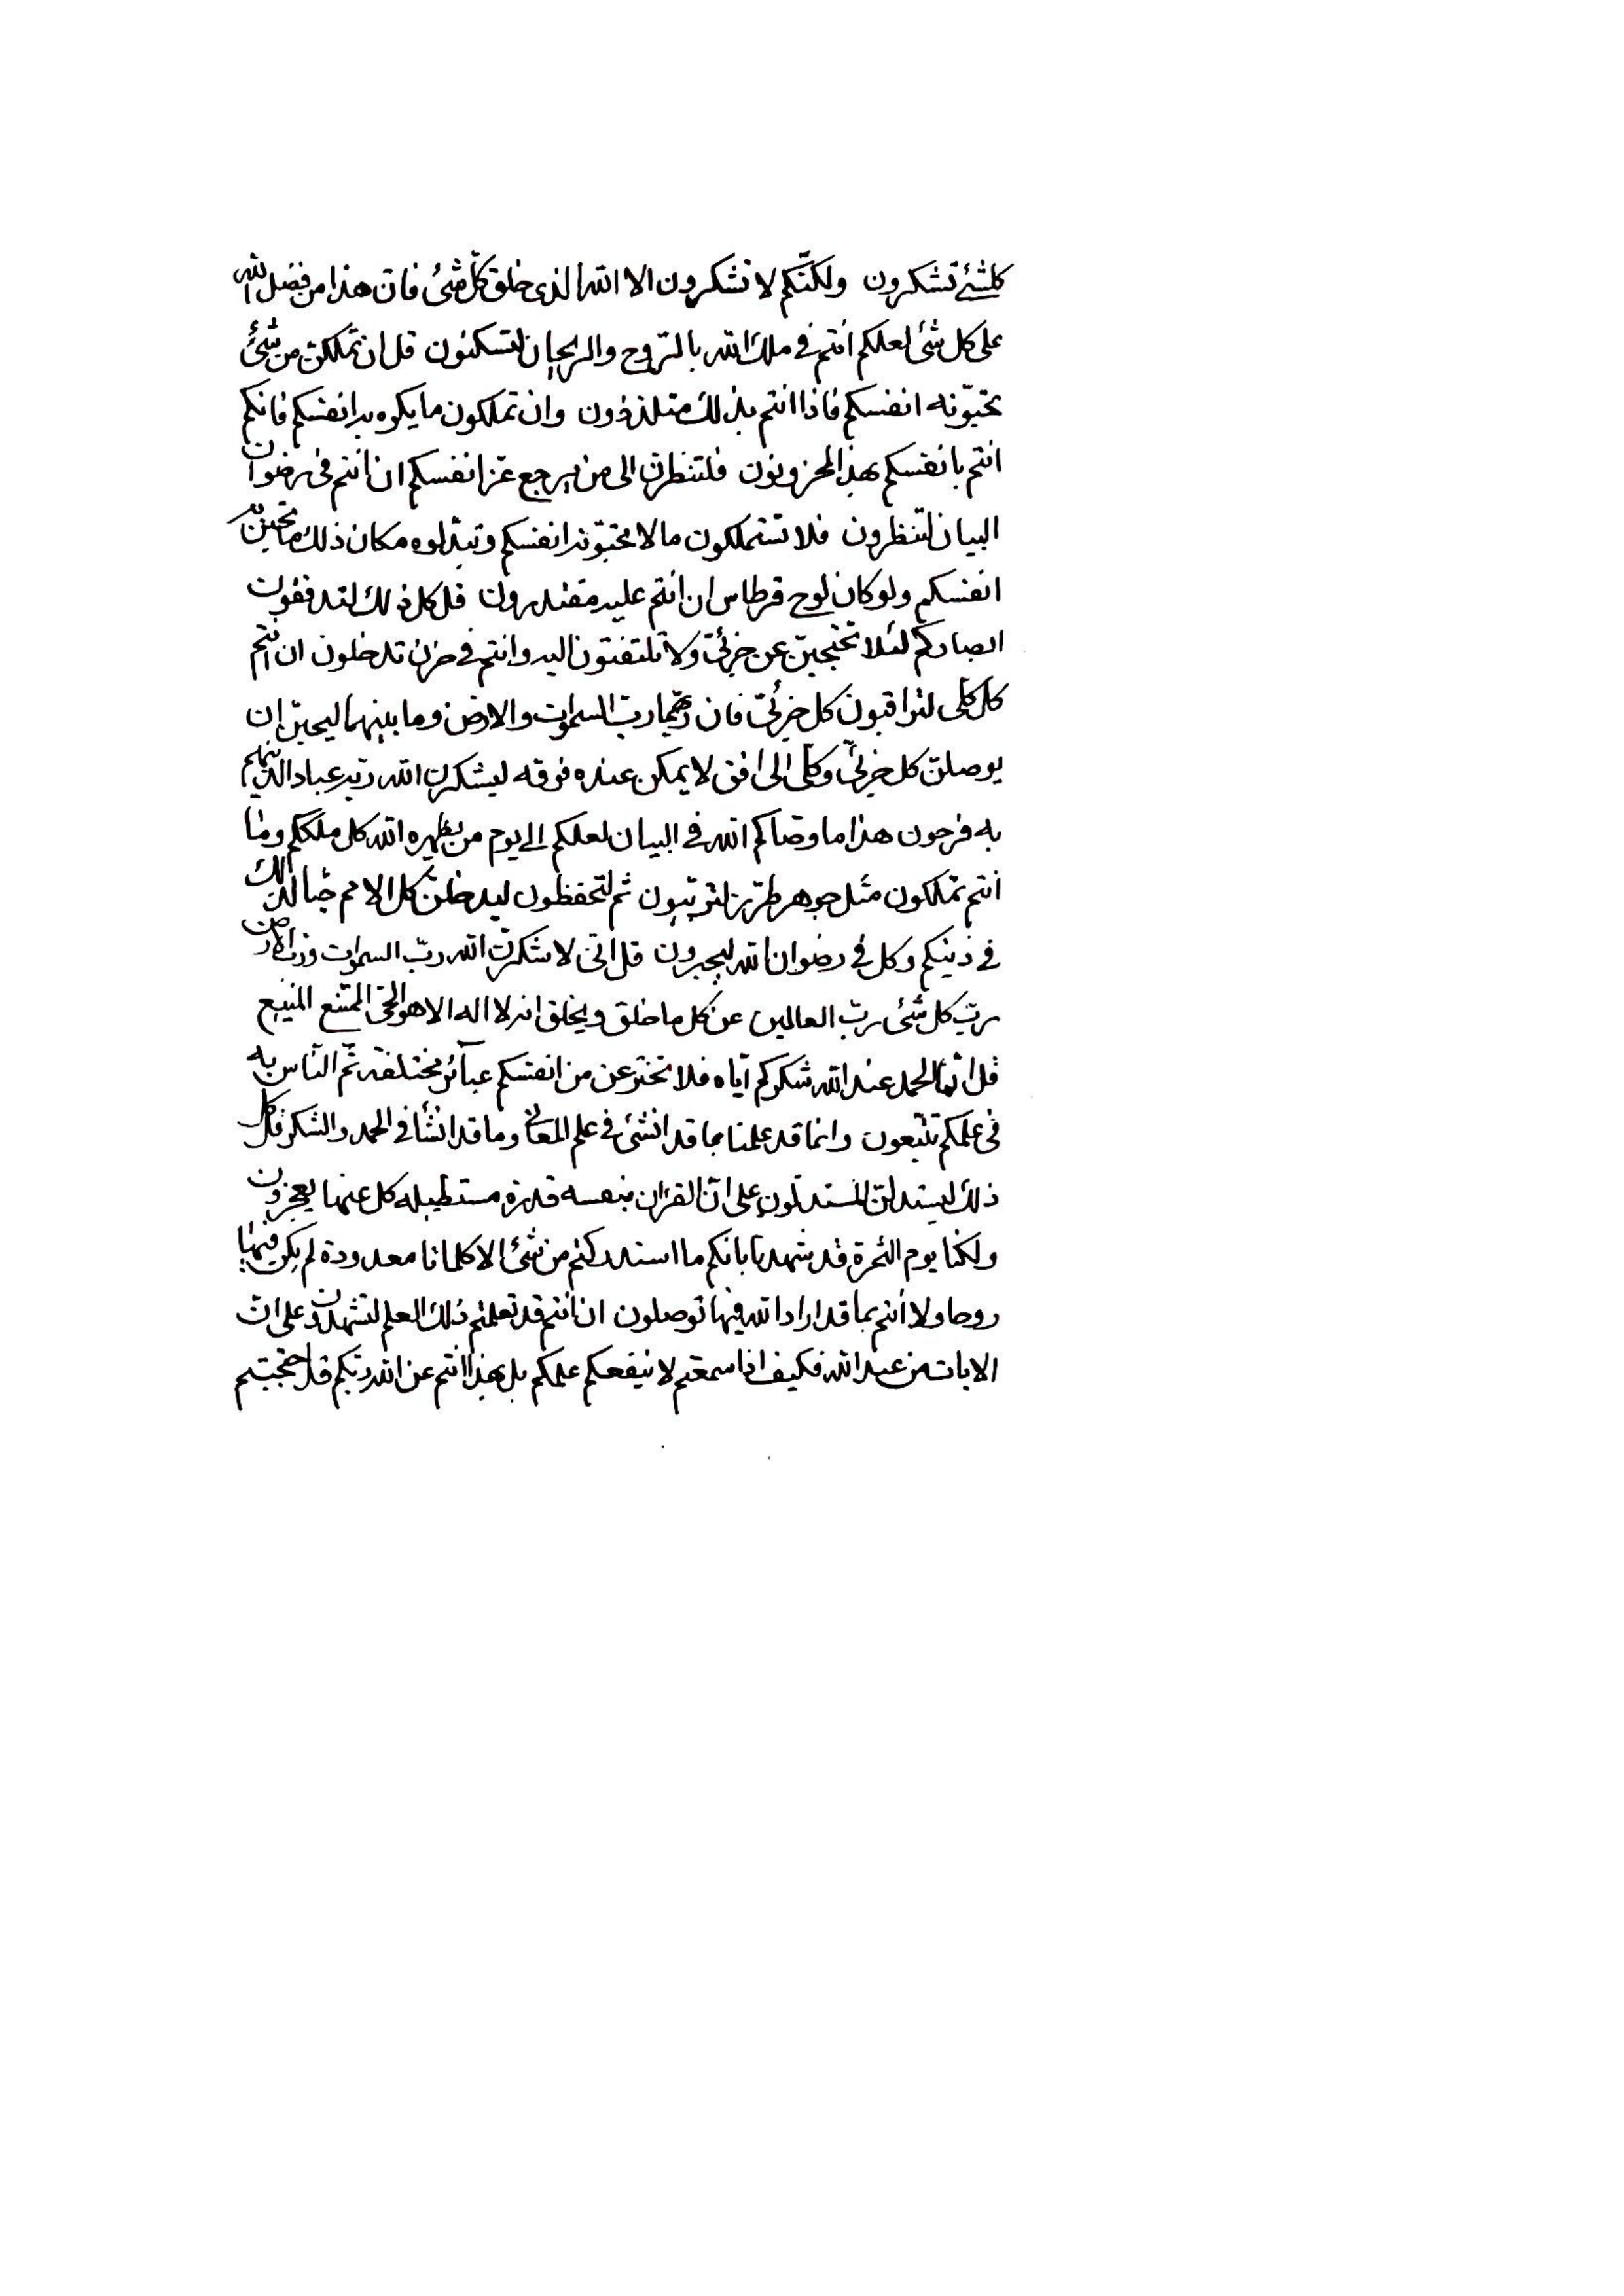 كلشئ تشكرون ولكنّكم لا تشكرون الا الله الذى خلق كلّ شئ فان هذا من فضل الله
على كل شئ لعلكم انتم في ملك الله بالروح والريحان لتسكنون قل ان تملكن من شئ
تحبّونه انفسكم فاذا انتم بذلك متلذذون وان تملكون ما يكره به انفسكم فانكم
انتم بانفسكم بهذا لمحزونون فلتنظرن الى من يرجع عن انفسكم ان انتم فى رضوان
البيان لتنظرون فلا تستملكون ما لا تحبّونه انفسكم وتبدّلوه مكان ذلك ما تحبّن
انفسكم ولو كان لوح قرطاس ان انتم عليه مقتدرون قل كل ذلك لتدققون
ابصاركم لئلا تحتجبنّ عن جزئىّ ولا تلتفتون اليه وانتم في حزن تدخلون ان انتم
كل كلى لتراقبون كل جزئىّ فان ربّكم ربّ السموات والارض وما بينهما ليحبّن ان
يوصلنّ كل جزئىّ وكلّى الى افق لا يمكن عنده فوقه ليشكرن الله ربّه عباد الذينهم
به فرحون هذا ما وصّاكم الله في البيان لعلكم الى يوم من يظهره الله كل ملككم وما
انتم تملكون مثل جوهر طرز لترتّبون ثم لتحفظون ليدخلنّ كل الامم حبّا لذلك
في دينكم وكل في رضوان الله ليحبرون قل اننى لاشكرنّ الله ربّ السموات وربّ الارض
ربّ كل شئ ربّ العالمين عن كل ما خلق ويخلق انه لا اله الا هو الحىّ الممتنع المنيع
قل انما الحمد عند الله شكركم ايّاه فلا تخترعن من انفسكم عبائر مختلفة ثمّ النّاس به
فى علمكم تتّبعون وانما قد علمنا بما قد انشئ في علم المعانى وما قد انشأ فى الحمد والشكر فكل
ذلك ليستدلنّ المستدلّون على انّ القرآن بنفسه قدرة مستطيلة كل عنها يعجزون
ولكنا يوم الثمرة قد شهدنا بانكم ما استدركتم من شئ الا كلمانا معدودة لم يكن فيها
روحا ولا انتم بما قد اراد الله فيها توصلون ان انتم قد تعلمتم ذلك العلم لتشهدون على انّ
الايات من عند الله فكيف اذا سمعتم لا ينفعكم علمكم بل بهذا انتم عن الله ربّكم قد احتجبتم